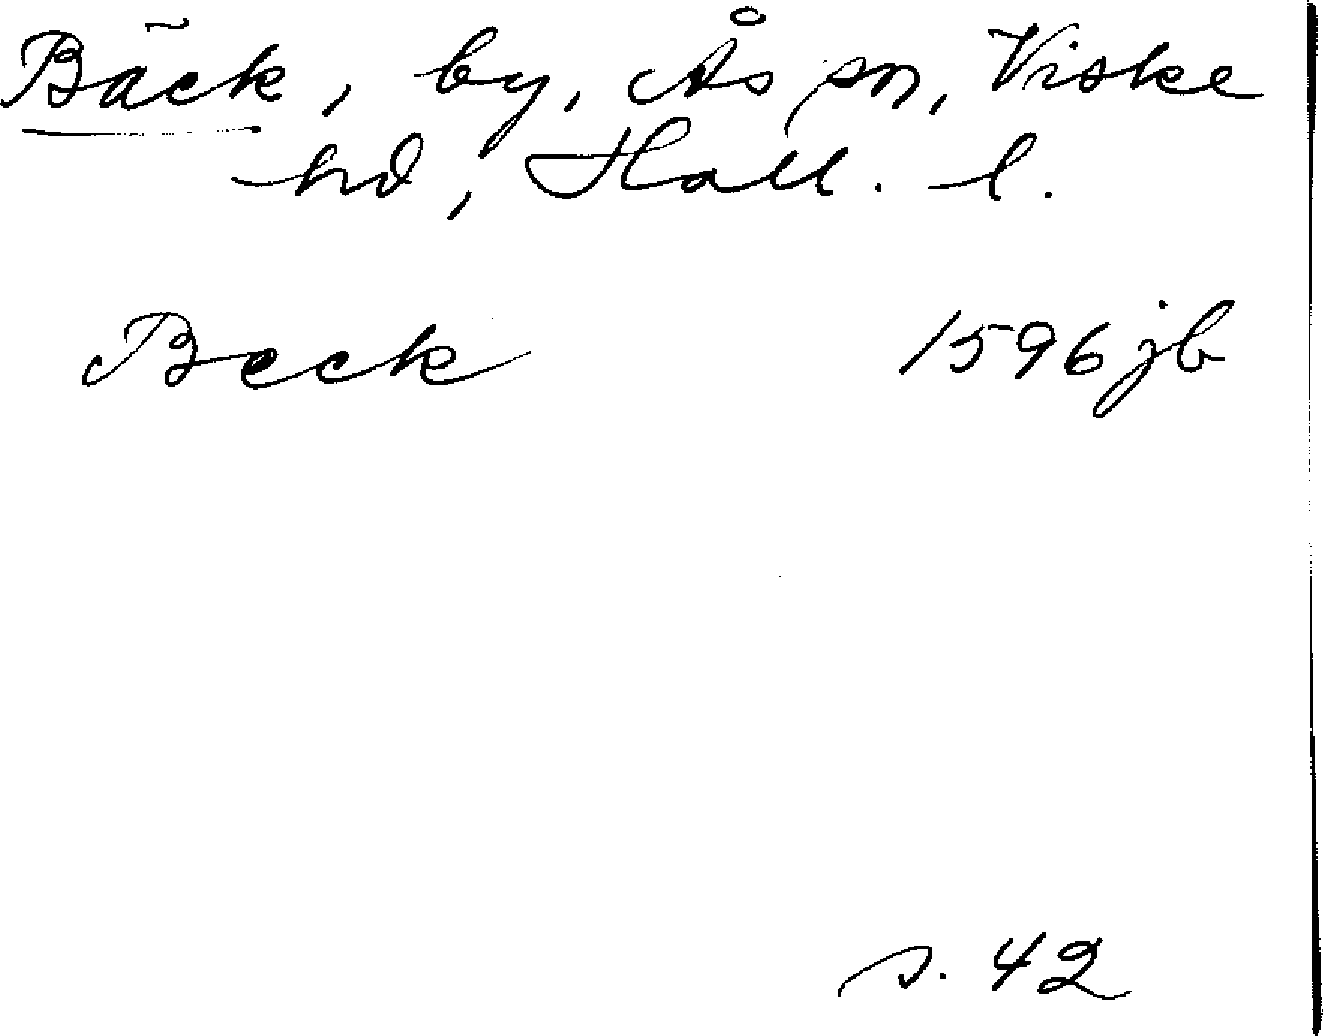 Bäck, by, Ås sn, Viske
hd, Hall. l.
Beck 1596 jb
s. 42